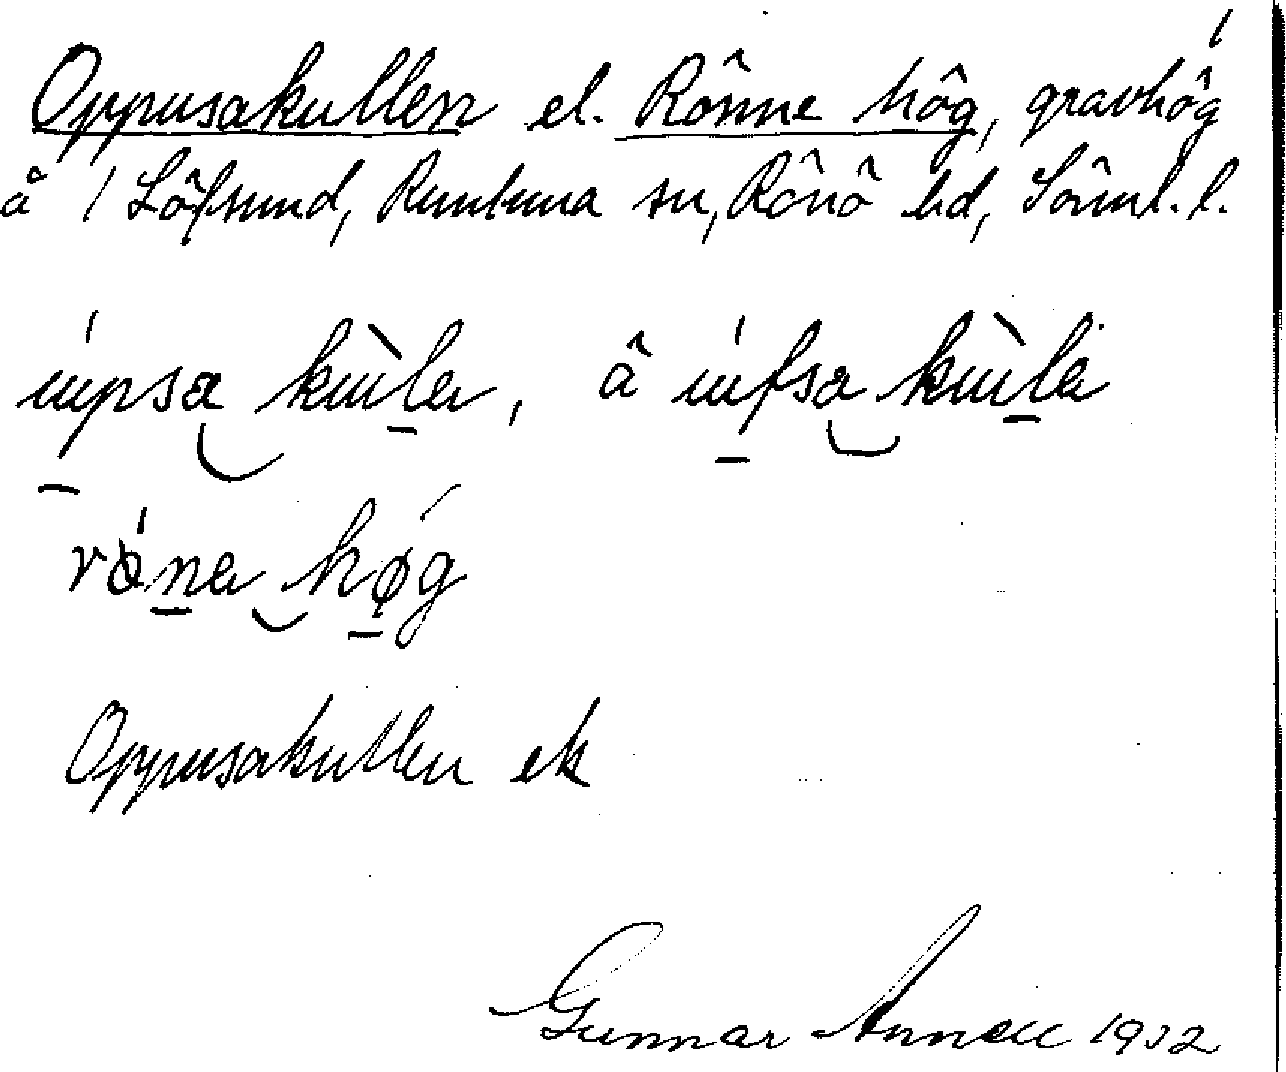 Oppusakullen el. Rönne hög, gravhög
å / Löfsund, Runtuna sn, Rönö hd, Sörml. l.
úpsa kùlɐ, å úfsa kùlɐ
róna høg
Oppusakullen ek
Gunnar Annell 1932